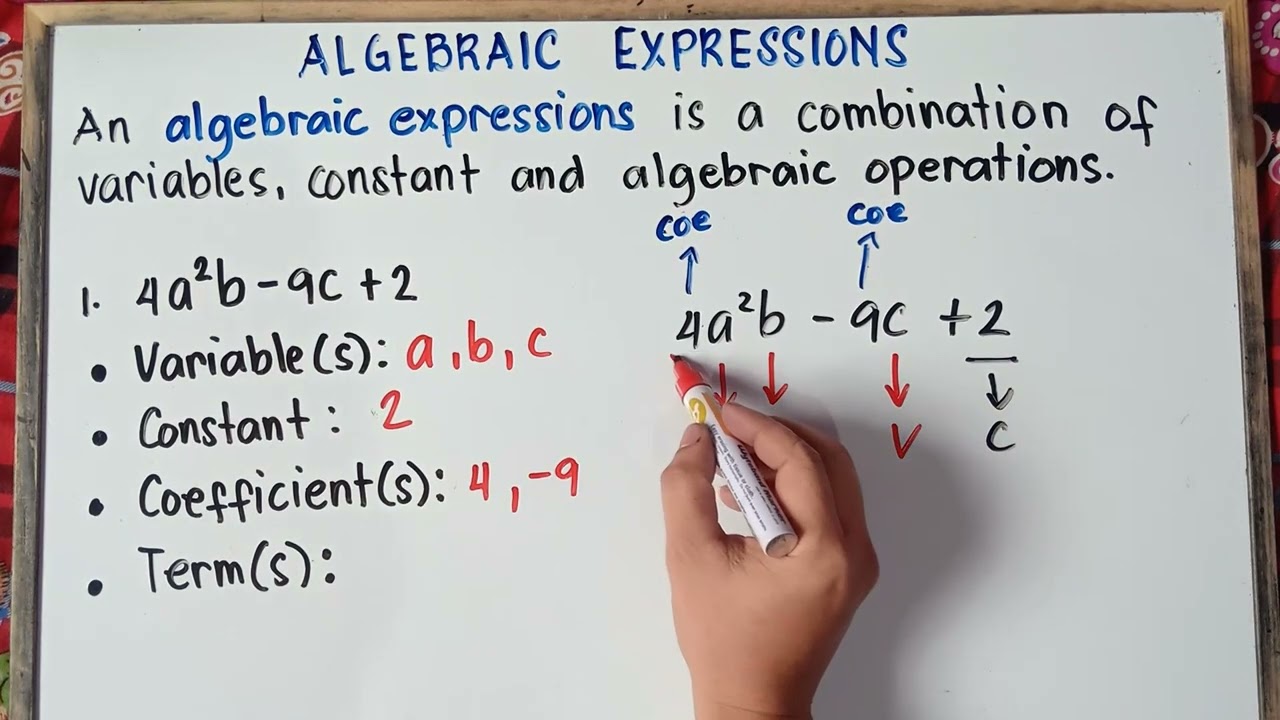 ALGEBRAIC EXPRESSIONS
An algebraic expressions is a combination of
variables, constant and algebraic operations.
1. 4a²b - 9c + 2
• Variable(s): a, b, c
• Constant: 2
• Coefficient(s): 4, -9
• Term(s):
coe coe
4a²b - 9c + 2
V C